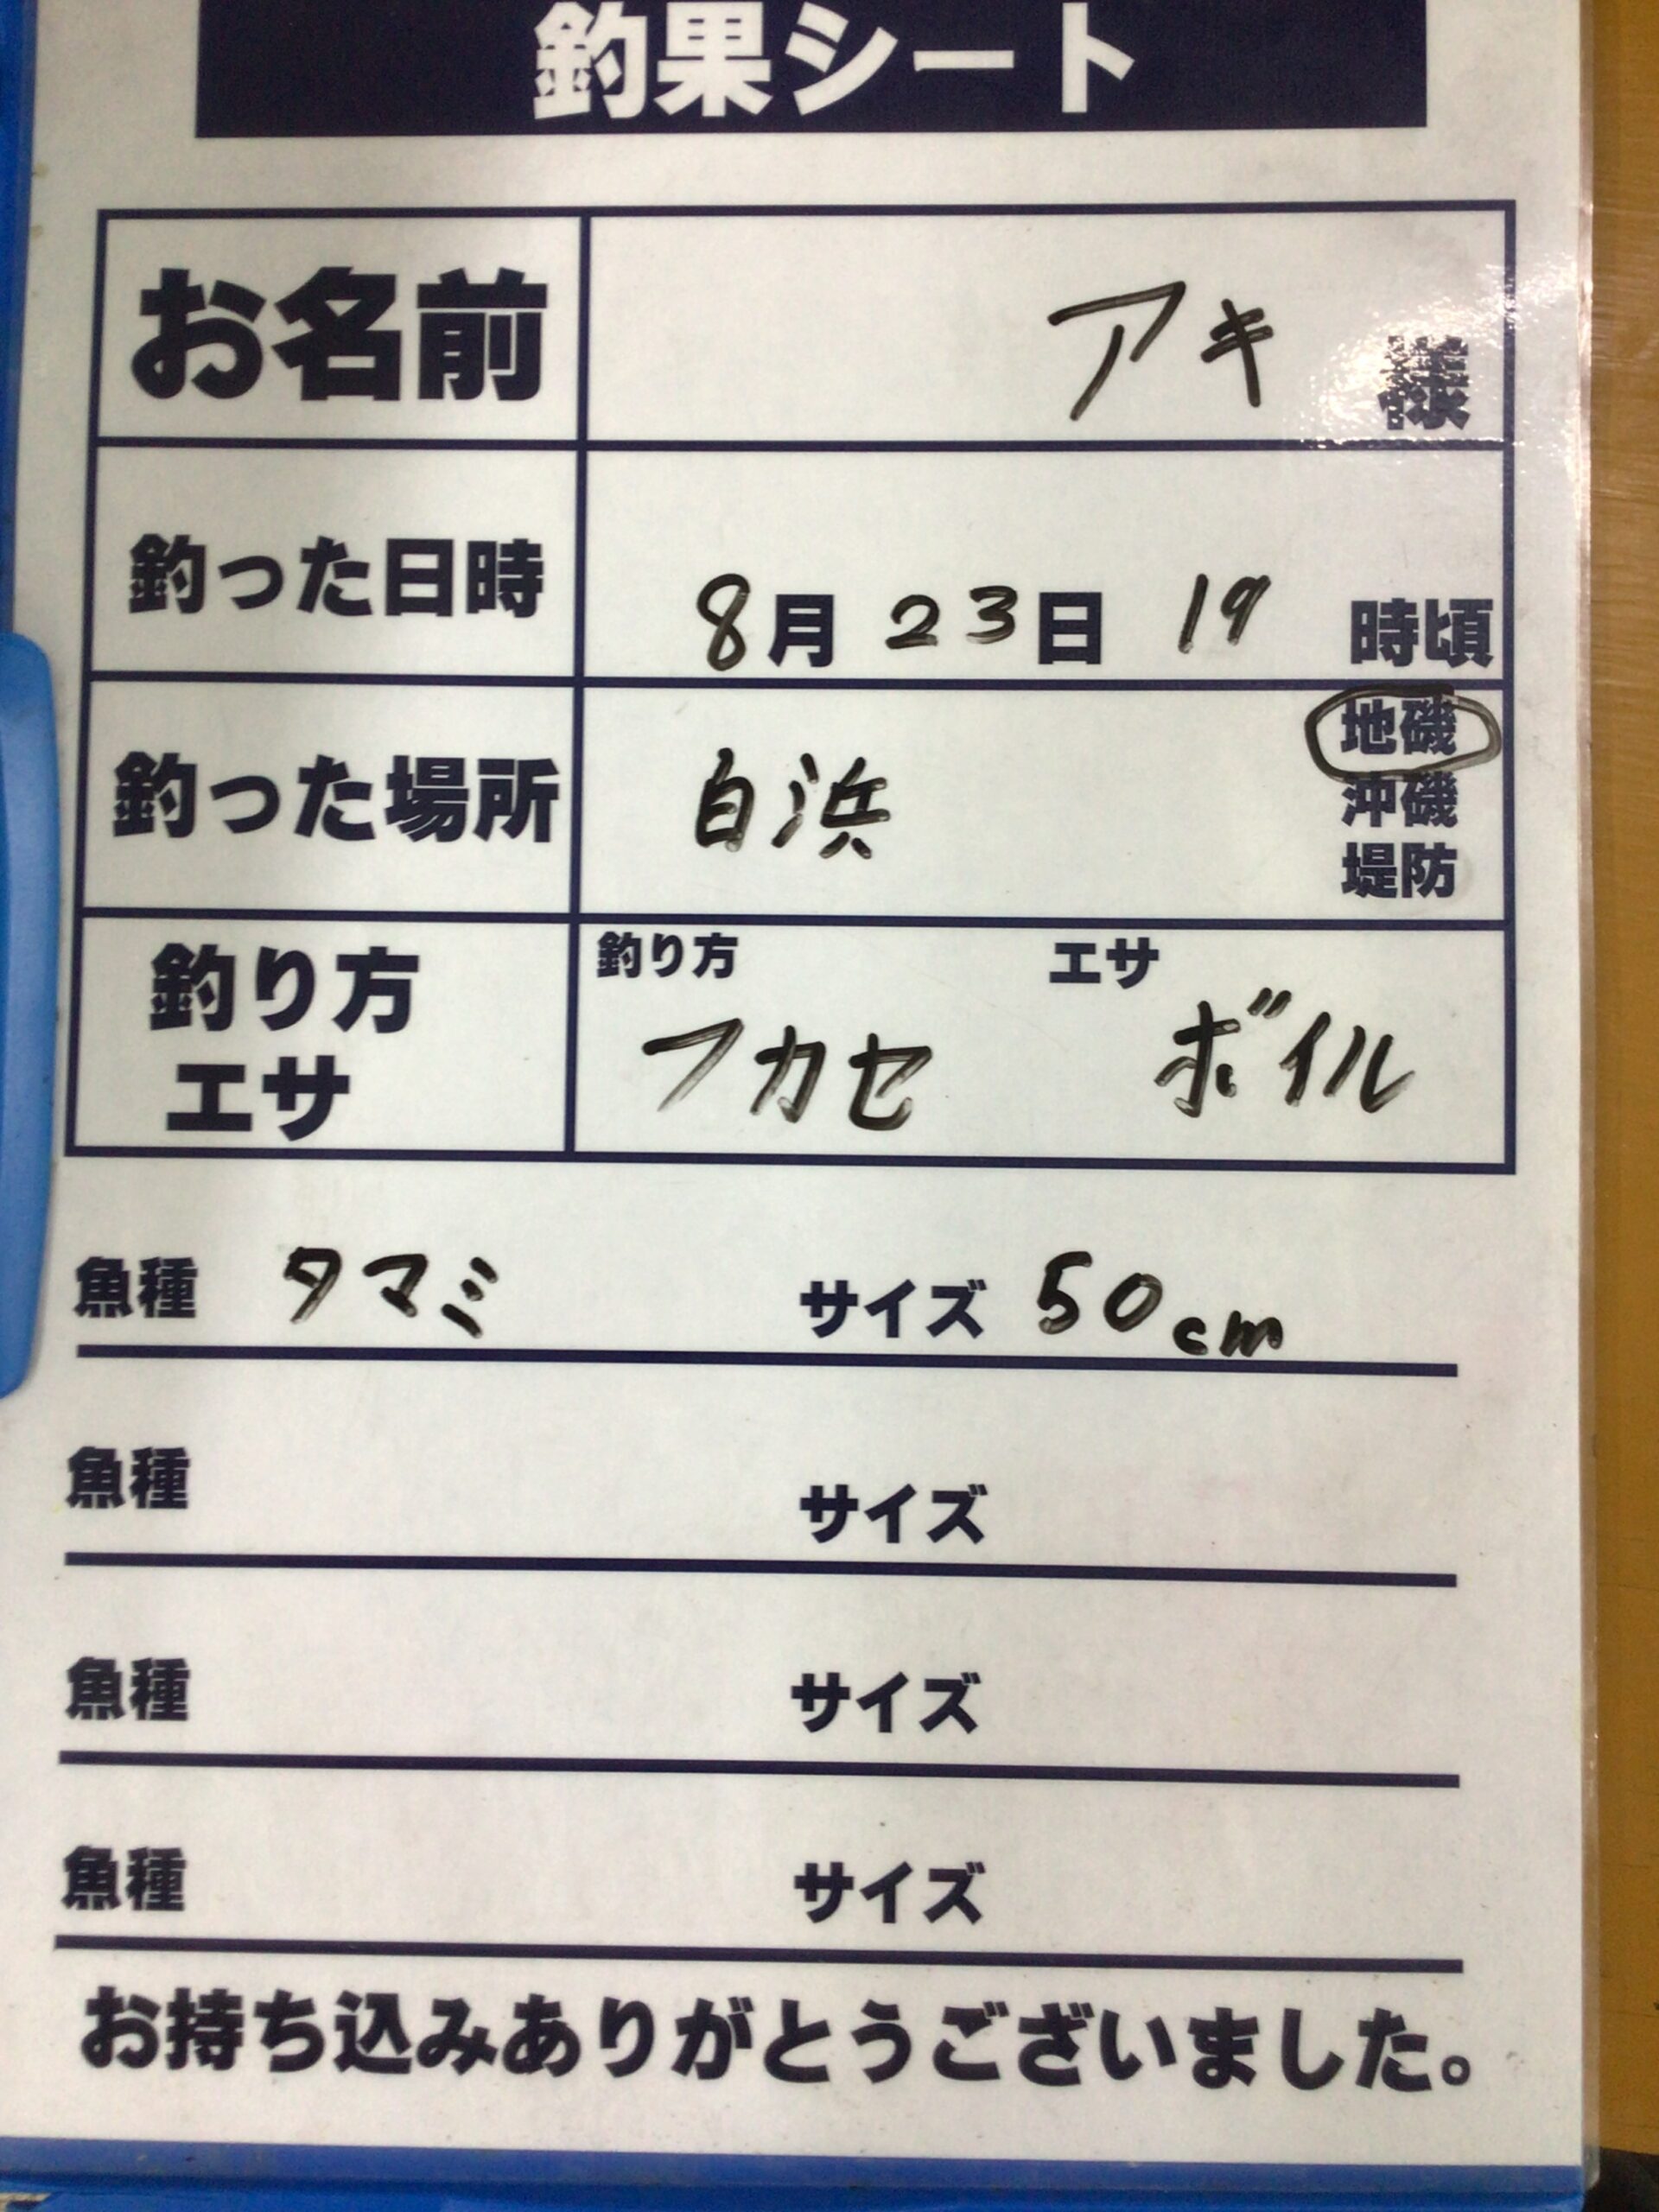 釣果シート
お名前 アキ 様
釣った日時 8月 23日 19 時頃
釣った場所 白浜 地磯
沖磯
堤防
釣り方 エサ
釣り方
エサ
フカセ ボイル
魚種 タマミ サイズ 50cm
魚種 サイズ
魚種 サイズ
魚種 サイズ
お持ち込みありがとうございました。